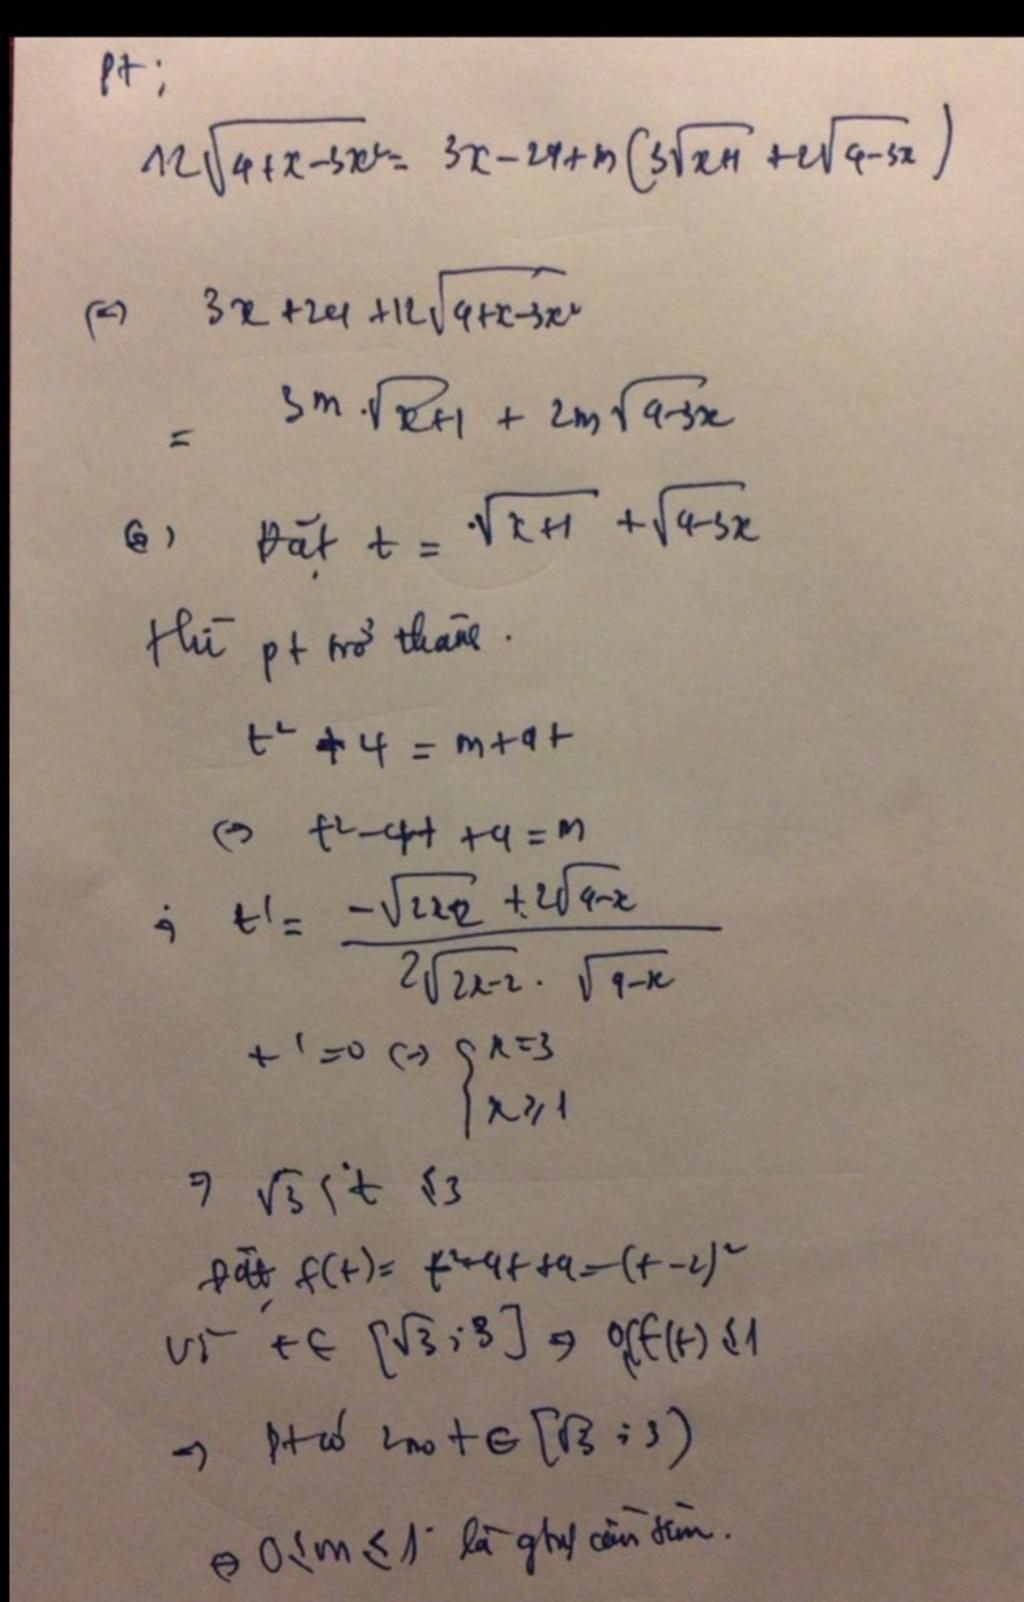 pt;
12√(4+x-3x²) = 3x-24+m(3√(x+1) +2√(4-3x))
(=) 3x+24+12√(4+x-3x²)
= 3m.√(x+1) + 2m√(4-3x)
Đặt t = √(x+1) + √(4-3x)
thì pt trở thành.
t² + 4 = m+4t
(=) t²-4t +4 = m
t' = (-√(2x-2) + 2√(4-x)) / (2√(2x-2) . √(4-x))
t'=0 (=) { x=3
x≥1
=> √3 ≤ t ≤3
Đặt f(t)= t²-4t+4=(t-2)²
vì t ∈ [√3;3] => 0≤f(t)≤1
=> pt có 2no t ∈ [√3;3)
⇔ 0≤m≤1 là gtrị cần tìm.